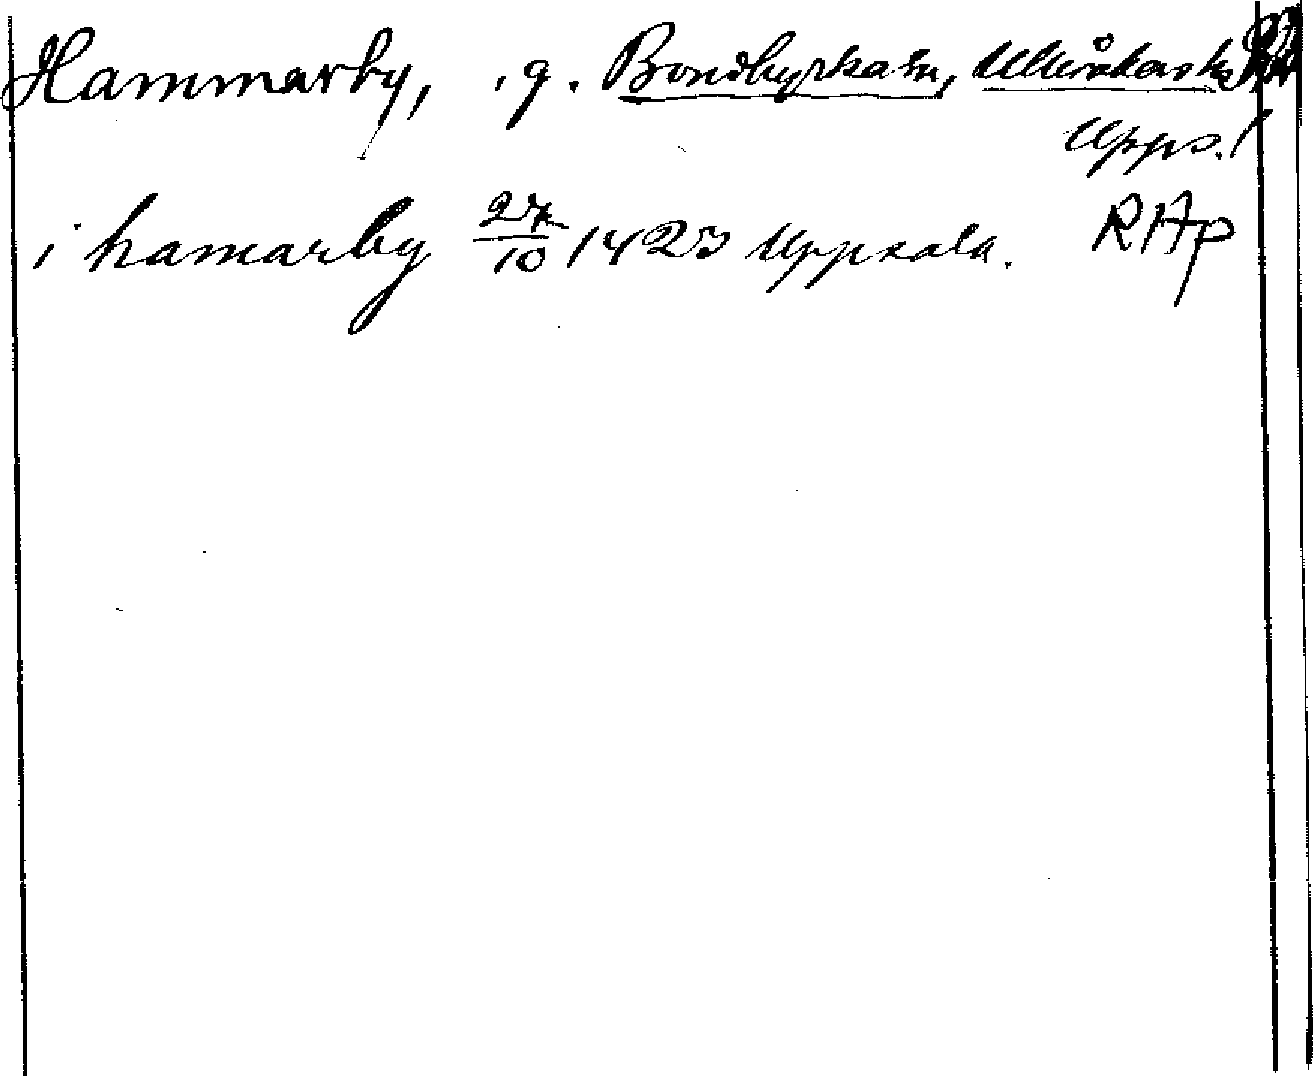 Hammarby, g. Bondkyrka sn, Ulleråkers
Upps. l
i hamarby 27/10 1423 Uppsala. RAp